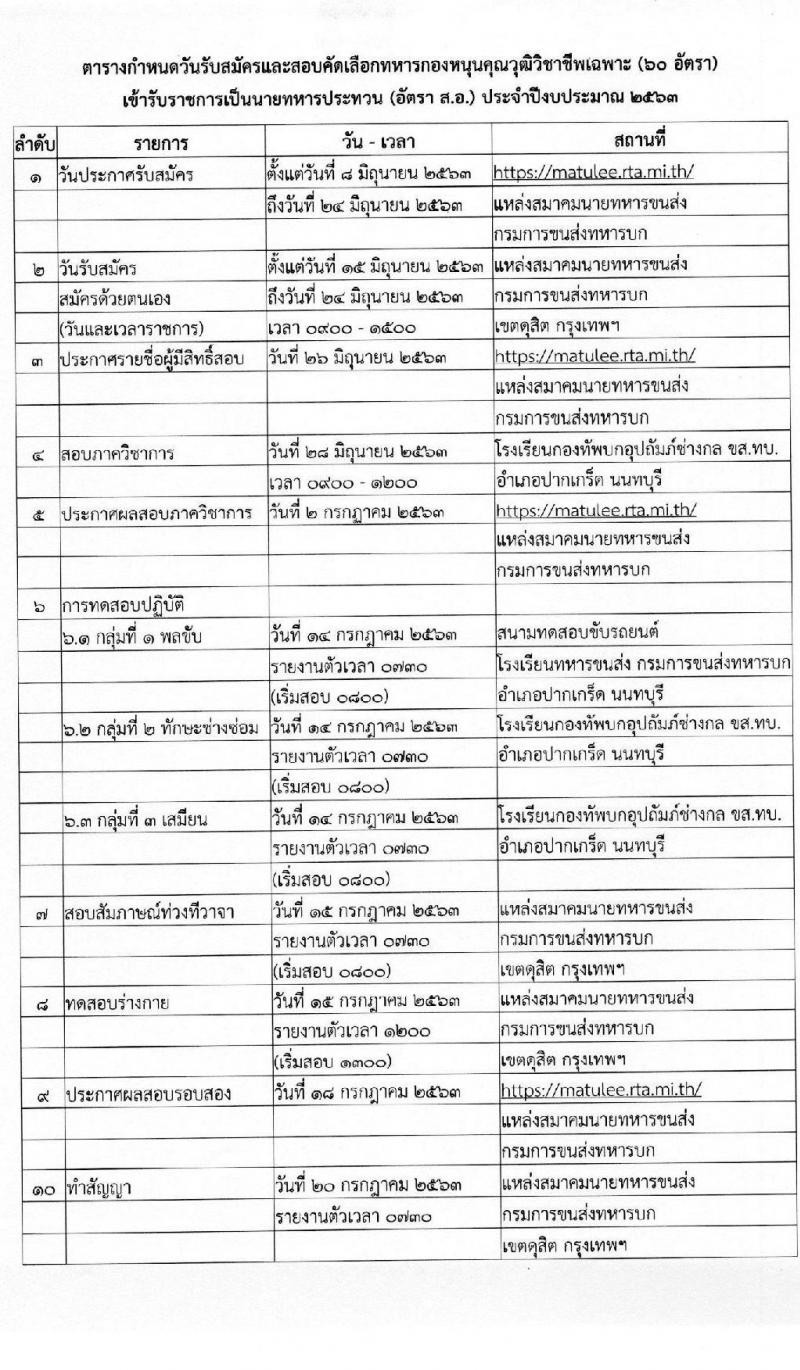 ตารางกำหนดวันรับสมัครและสอบคัดเลือกทหารกองหนุนคุณวุฒิวิชาชีพเฉพาะ (๖๐ อัตรา)
เข้ารับราชการเป็นนายทหารประทวน (อัตรา ส.อ.) ประจำปีงบประมาณ ๒๕๖๓
ลำดับ รายการ วัน - เวลา สถานที่
๑ วันประกาศรับสมัคร ตั้งแต่วันที่ ๘ มิถุนายน ๒๕๖๓ https://matulee.rta.mi.th/
ถึงวันที่ ๒๔ มิถุนายน ๒๕๖๓ แหล่งสมาคมนายทหารขนส่ง
กรมการขนส่งทหารบก
๒ วันรับสมัคร ตั้งแต่วันที่ ๑๕ มิถุนายน ๒๕๖๓ แหล่งสมาคมนายทหารขนส่ง
สมัครด้วยตนเอง ถึงวันที่ ๒๔ มิถุนายน ๒๕๖๓ กรมการขนส่งทหารบก
(วันและเวลาราชการ) เวลา ๐๙๐๐ - ๑๕๐๐ เขตดุสิต กรุงเทพฯ
๓ ประกาศรายชื่อผู้มีสิทธิ์สอบ วันที่ ๒๖ มิถุนายน ๒๕๖๓ https://matulee.rta.mi.th/
แหล่งสมาคมนายทหารขนส่ง
กรมการขนส่งทหารบก
๔ สอบภาควิชาการ วันที่ ๒๘ มิถุนายน ๒๕๖๓ โรงเรียนกองทัพบกอุปถัมภ์ช่างกล ขส.ทบ.
เวลา ๐๙๐๐ - ๑๒๐๐ อำเภอปากเกร็ด นนทบุรี
๕ ประกาศผลสอบภาควิชาการ วันที่ ๒ กรกฏาคม ๒๕๖๓ https://matulee.rta.mi.th/
แหล่งสมาคมนายทหารขนส่ง
กรมการขนส่งทหารบก
๖ การทดสอบปฏิบัติ
๖.๑ กลุ่มที่ ๑ พลขับ วันที่ ๑๔ กรกฎาคม ๒๕๖๓ สนามทดสอบขับรถยนต์
รายงานตัวเวลา ๐๗๓๐ โรงเรียนทหารขนส่ง กรมการขนส่งทหารบก
(เริ่มสอบ ๐๘๐๐) อำเภอปากเกร็ด นนทบุรี
๖.๒ กลุ่มที่ ๒ ทักษะช่างซ่อม วันที่ ๑๔ กรกฎาคม ๒๕๖๓ โรงเรียนกองทัพบกอุปถัมภ์ช่างกล ขส.ทบ.
รายงานตัวเวลา ๐๗๓๐ อำเภอปากเกร็ด นนทบุรี
(เริ่มสอบ ๐๘๐๐)
๖.๓ กลุ่มที่ ๓ เสมียน วันที่ ๑๔ กรกฎาคม ๒๕๖๓ โรงเรียนกองทัพบกอุปถัมภ์ช่างกล ขส.ทบ.
รายงานตัวเวลา ๐๗๓๐ อำเภอปากเกร็ด นนทบุรี
(เริ่มสอบ ๐๘๐๐)
๗ สอบสัมภาษณ์ท่วงทีวาจา วันที่ ๑๕ กรกฎาคม ๒๕๖๓ แหล่งสมาคมนายทหารขนส่ง
รายงานตัวเวลา ๐๗๓๐ กรมการขนส่งทหารบก
(เริ่มสอบ ๐๘๐๐) เขตดุสิต กรุงเทพฯ
๘ ทดสอบร่างกาย วันที่ ๑๕ กรกฎาคม ๒๕๖๓ แหล่งสมาคมนายทหารขนส่ง
รายงานตัวเวลา ๑๒๐๐ กรมการขนส่งทหารบก
(เริ่มสอบ ๑๓๐๐) เขตดุสิต กรุงเทพฯ
๙ ประกาศผลสอบรอบสอง วันที่ ๑๘ กรกฎาคม ๒๕๖๓ https://matulee.rta.mi.th/
แหล่งสมาคมนายทหารขนส่ง
กรมการขนส่งทหารบก
๑๐ ทำสัญญา วันที่ ๒๐ กรกฎาคม ๒๕๖๓ แหล่งสมาคมนายทหารขนส่ง
รายงานตัวเวลา ๐๗๓๐ กรมการขนส่งทหารบก
เขตดุสิต กรุงเทพฯ